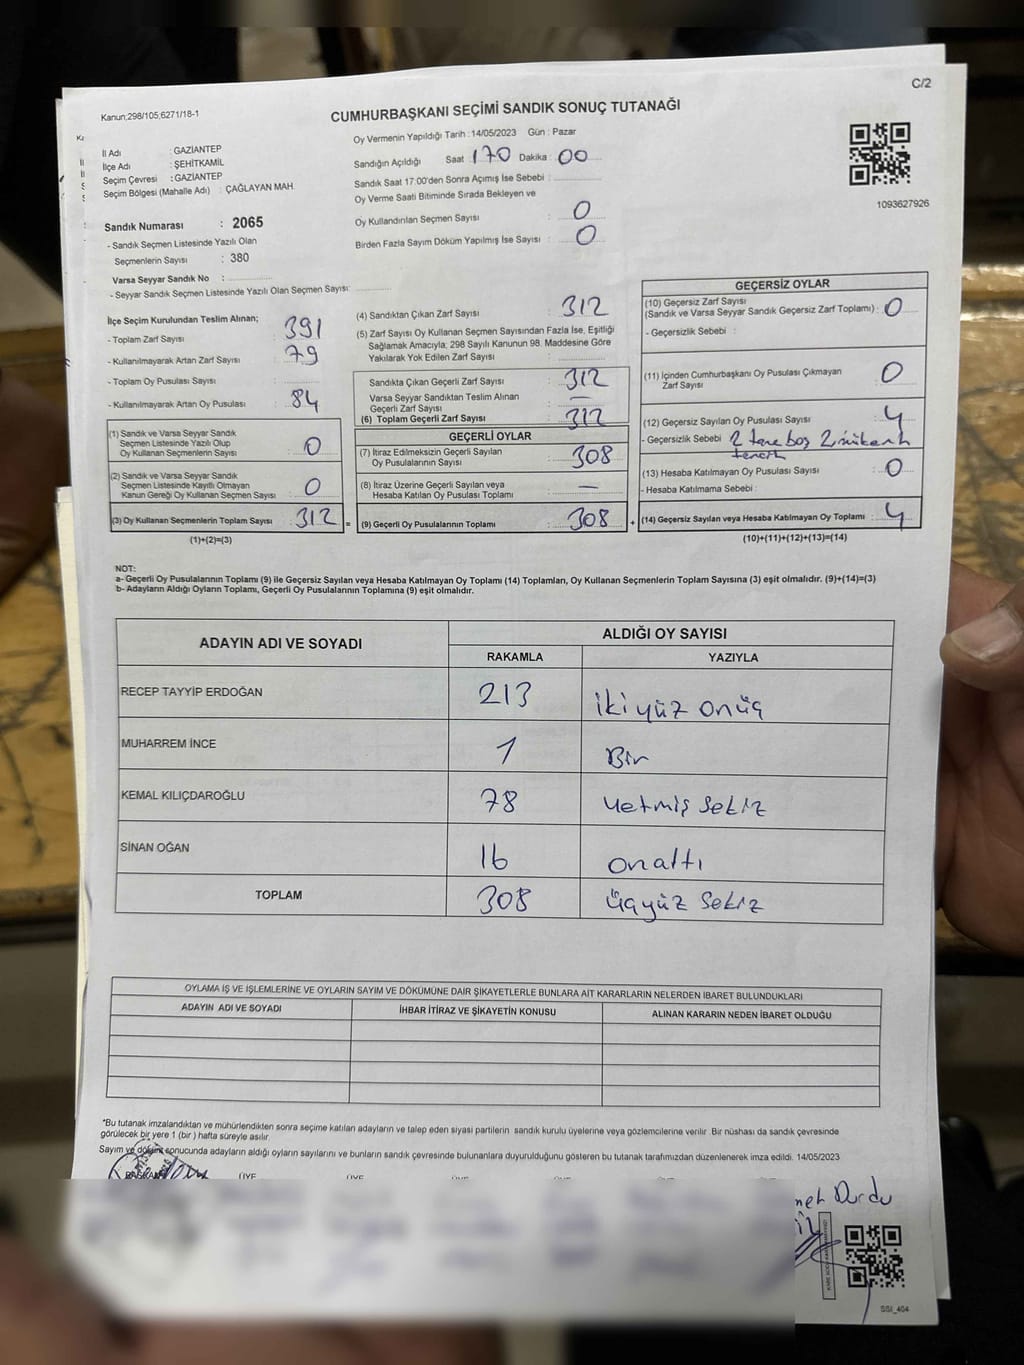 C/2
Kanun;298/105;6271/18-1
CUMHURBAŞKANI SEÇİMİ SANDIK SONUÇ TUTANAĞI
İl Adı : GAZİANTEP
İlçe Adı : ŞEHİTKAMİL
Seçim Çevresi : GAZİANTEP
Seçim Bölgesi (Mahalle Adı) : ÇAĞLAYAN MAH.
Sandık Numarası : 2065
- Sandık Seçmen Listesinde Yazılı Olan
Seçmenlerin Sayısı : 380
Varsa Seyyar Sandık No :
- Seyyar Sandık Seçmen Listesinde Yazılı Olan Seçmen Sayısı:
Oy Vermenin Yapıldığı Tarih : 14/05/2023 Gün : Pazar
Sandığın Açıldığı Saat 170 Dakika : 00
Sandık Saat 17:00'den Sonra Açımış İse Sebebi :
Oy Verme Saati Bitiminde Sırada Bekleyen ve
Oy Kullandırılan Seçmen Sayısı : 0
Birden Fazla Sayım Döküm Yapılmış İse Sayısı : 0
1093627926
İlçe Seçim Kurulundan Teslim Alınan;
- Toplam Zarf Sayısı : 391
- Kullanılmayarak Artan Zarf Sayısı : 79
- Toplam Oy Pusulası Sayısı :
- Kullanılmayarak Artan Oy Pusulası : 84
(1) Sandık ve Varsa Seyyar Sandık
Seçmen Listesinde Yazılı Olup
Oy Kullanan Seçmenlerin Sayısı : 0
(2) Sandık ve Varsa Seyyar Sandık
Seçmen Listesinde Kayıtlı Olmayan
Kanun Gereği Oy Kullanan Seçmen Sayısı : 0
(3) Oy Kullanan Seçmenlerin Toplam Sayısı : 312 =
(1)+(2)=(3)
(4) Sandıktan Çıkan Zarf Sayısı : 312
(5) Zarf Sayısı Oy Kullanan Seçmen Sayısından Fazla İse, Eşitliği
Sağlamak Amacıyla; 298 Sayılı Kanunun 98. Maddesine Göre
Yakılarak Yok Edilen Zarf Sayısı :
Sandıkta Çıkan Geçerli Zarf Sayısı : 312
Varsa Seyyar Sandıktan Teslim Alınan
Geçerli Zarf Sayısı : —
(6) Toplam Geçerli Zarf Sayısı : 312
GEÇERLİ OYLAR
(7) İtiraz Edilmeksizin Geçerli Sayılan
Oy Pusulalarının Sayısı : 308
(8) İtiraz Üzerine Geçerli Sayılan veya
Hesaba Katılan Oy Pusulası Toplamı : —
(9) Geçerli Oy Pusulalarının Toplamı : 308 +
GEÇERSİZ OYLAR
(10) Geçersiz Zarf Sayısı
(Sandık ve Varsa Seyyar Sandık Geçersiz Zarf Toplamı) : 0
- Geçersizlik Sebebi :
(11) İçinden Cumhurbaşkanı Oy Pusulası Çıkmayan
Zarf Sayısı : 0
(12) Geçersiz Sayılan Oy Pusulası Sayısı : 4
- Geçersizlik Sebebi 2 tane boş 2
(13) Hesaba Katılmayan Oy Pusulası Sayısı : 0
- Hesaba Katılmama Sebebi :
(14) Geçersiz Sayılan veya Hesaba Katılmayan Oy Toplamı : 4
(10)+(11)+(12)+(13)=(14)
NOT:
a- Geçerli Oy Pusulalarının Toplamı (9) ile Geçersiz Sayılan veya Hesaba Katılmayan Oy Toplamı (14) Toplamları, Oy Kullanan Seçmenlerin Toplam Sayısına (3) eşit olmalıdır. (9)+(14)=(3)
b- Adayların Aldığı Oyların Toplamı, Geçerli Oy Pusulalarının Toplamına (9) eşit olmalıdır.
ADAYIN ADI VE SOYADI
ALDIĞI OY SAYISI
RAKAMLA YAZIYLA
RECEP TAYYİP ERDOĞAN 213 ikiyüz onüç
MUHARREM İNCE 1 Bir
KEMAL KILIÇDAROĞLU 78 Yetmiş sekiz
SİNAN OĞAN 16 onaltı
TOPLAM 308 üçyüz sekiz
OYLAMA İŞ VE İŞLEMLERİNE VE OYLARIN SAYIM VE DÖKÜMÜNE DAİR ŞİKAYETLERLE BUNLARA AİT KARARLARIN NELERDEN İBARET BULUNDUKLARI
ADAYIN ADI VE SOYADI İHBAR İTİRAZ VE ŞİKAYETİN KONUSU ALINAN KARARIN NEDEN İBARET OLDUĞU
*Bu tutanak imzalandıktan ve mühürlendikten sonra seçime katılan adayların ve talep eden siyasi partilerin sandık kurulu üyelerine veya gözlemcilerine verilir. Bir nüshası da sandık çevresinde
görülecek bir yere 1 (bir) hafta süreyle asılır.
Sayım ve döküm sonucunda adayların aldığı oyların sayılarını ve bunların sandık çevresinde bulunanlara duyurulduğunu gösteren bu tutanak tarafımızdan düzenlenerek imza edildi. 14/05/2023
ÜYE ÜYE
Durdu
SSI_404